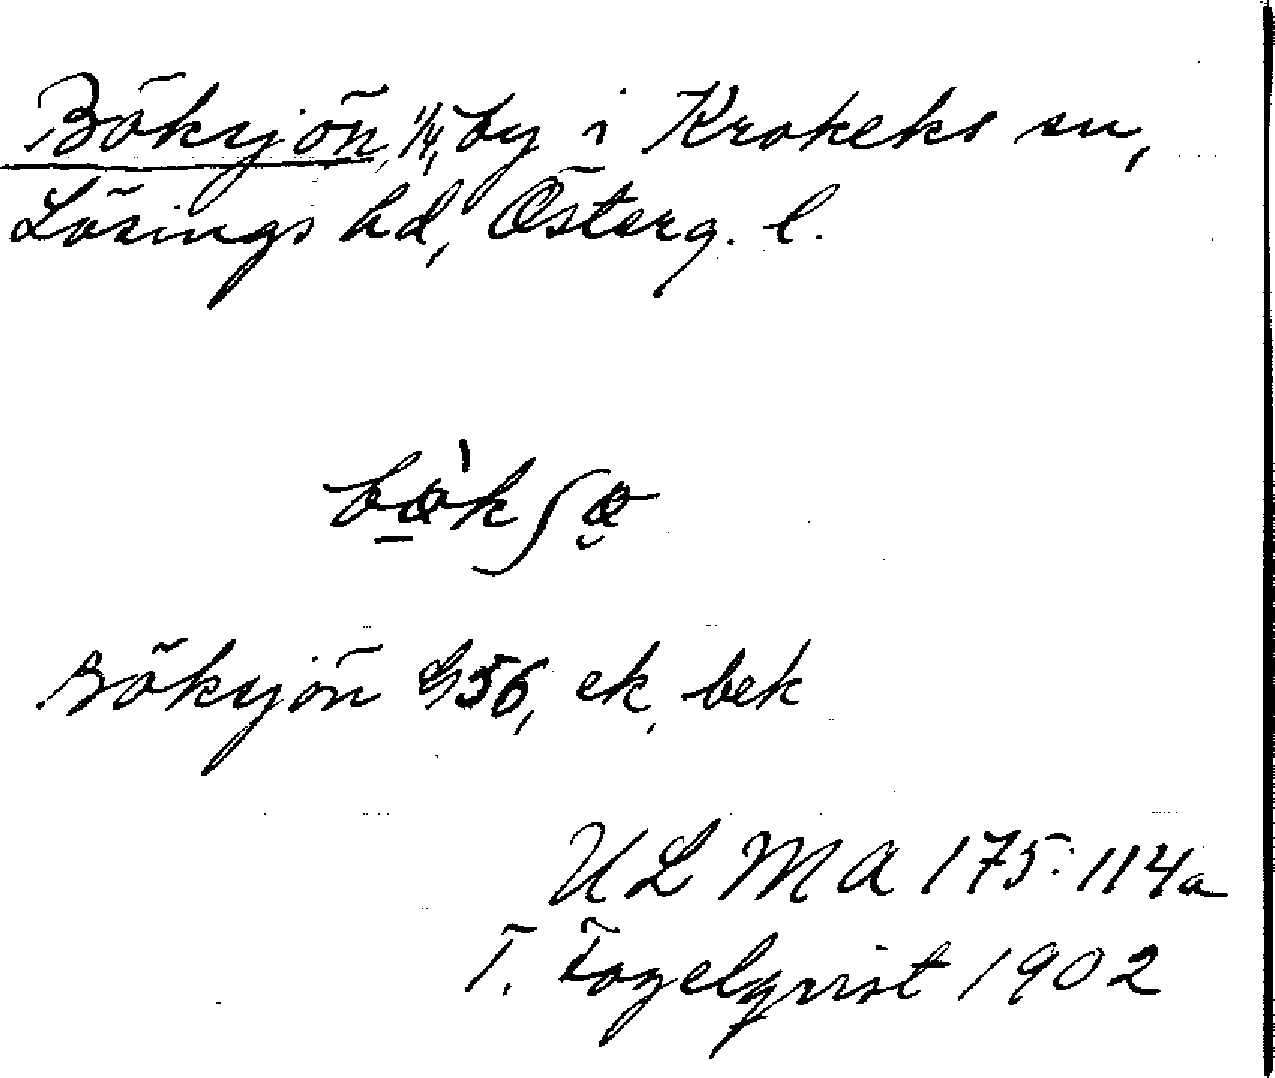 Böksjön, 1/4, by i Krokeks sn,
Lösings hd, Österg. l.
bø̱̀kʃø̮
Böksjön G56, ek, bek
ULMA 175:114a
T. Fogelqvist 1902